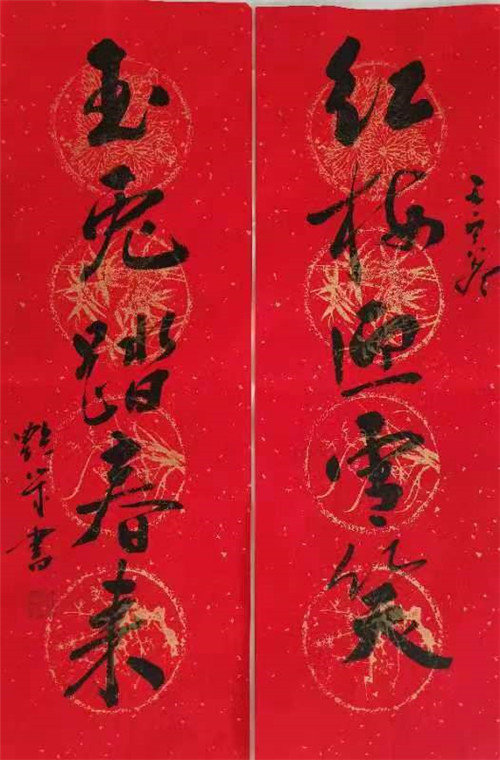 红梅迎雪笑
壬寅
玉兔踏春来
書